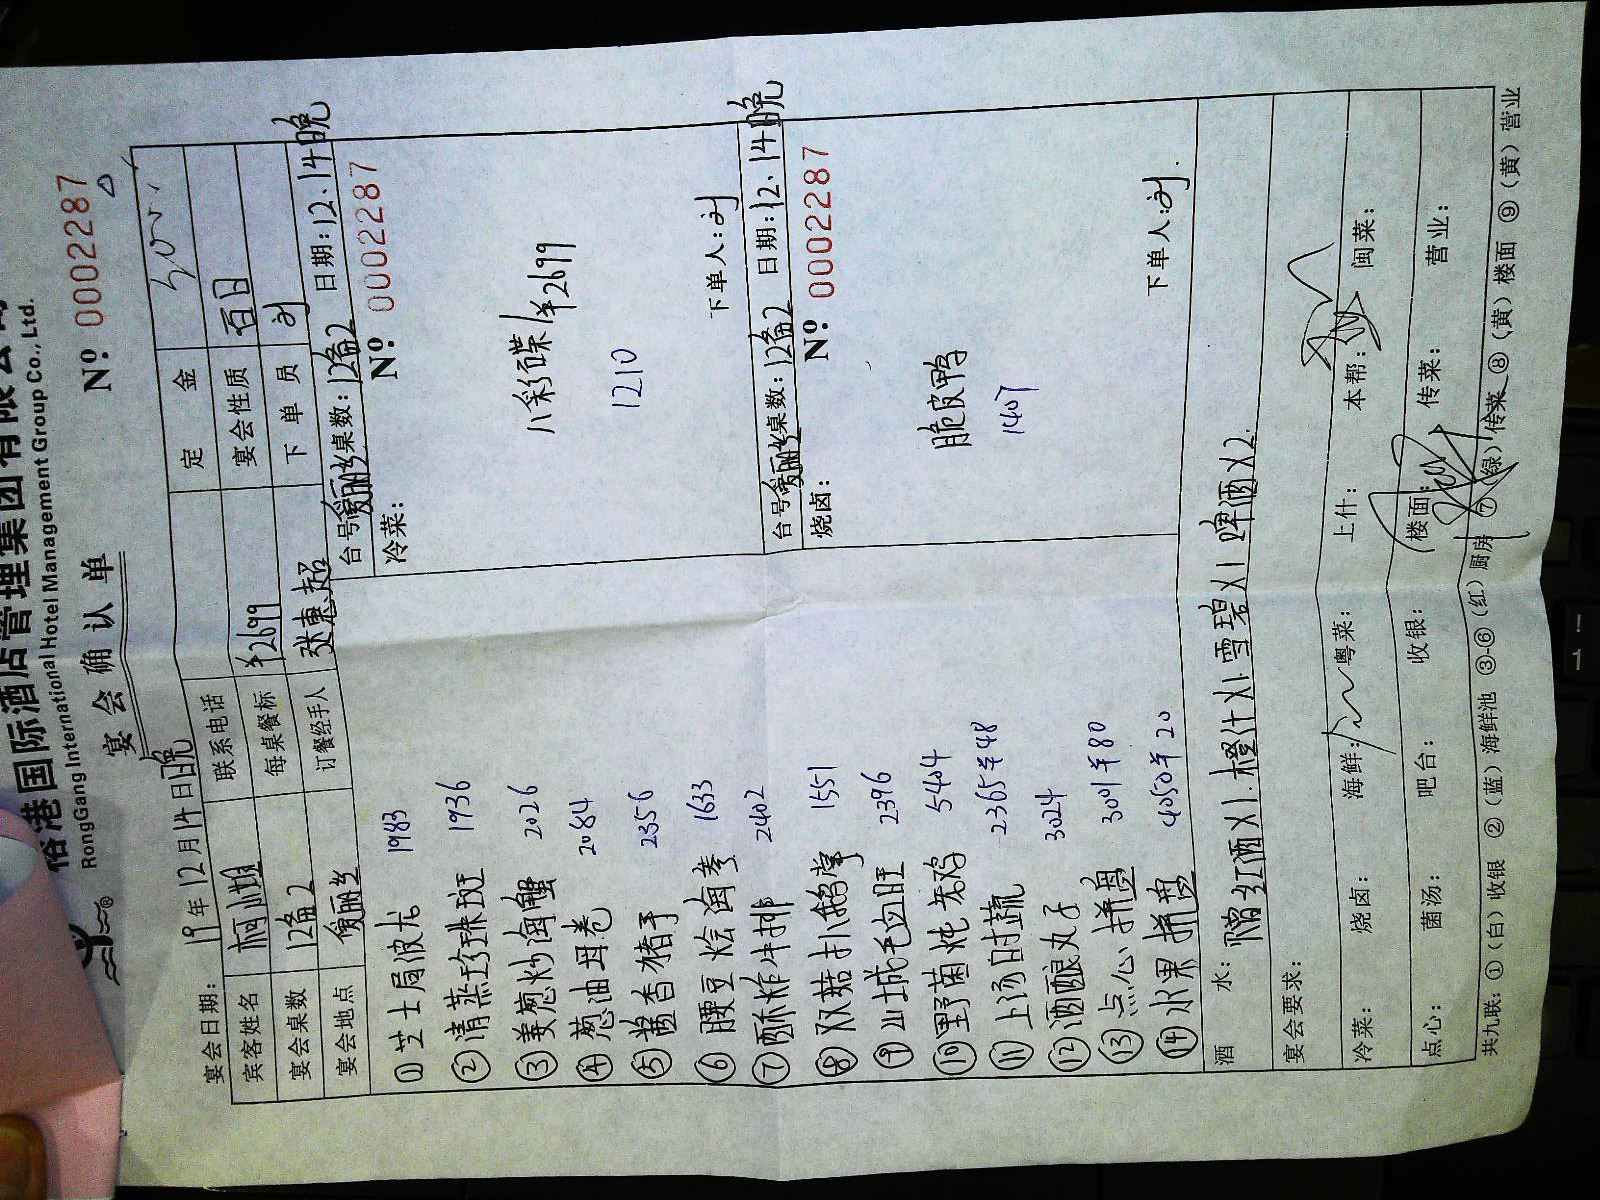 港国际酒店管理集团有限公司
RongGang International Hotel Management Group Co., Ltd.
宴会确认单
Nº 0002287
宴会日期: 19年12月14日晚
定金
宾客姓名 联系电话 宴会性质 百日
宴会桌数 12备2 每桌餐标 ¥2699 下单员 刘
宴会地点 爱丽丝 订餐经手人 张惠超
台号 爱丽丝 桌数: 12备2 日期: 12.14晚
冷菜: Nº 0002287
八彩碟 ¥2699
1210
下单人: 刘
台号 爱丽丝 桌数: 12备2 日期: 12.14晚
烧卤: Nº 0002287
脆皮鸭
1407
下单人: 刘
① 芝士局波龙 1983
② 清蒸珍珠斑 1936
③ 姜葱炒海蟹 2026
④ 葱油母卷 2084
⑤ 酱香猪手 2356
⑥ 腰豆烩海参 1633
⑦ 酥炸牛排 2402
⑧ 双菇扒鹅掌 1551
⑨ 山城毛血旺 2396
⑩ 野菌炖老鸡 5404
⑪ 上汤时蔬 2365羊48
⑫ 酒酿丸子 3024
⑬ 点心拼盘 3001羊80
⑭ 水果拼盘 4050羊20
酒水: 赠红酒X1. 橙汁X1. 雪碧X1 啤酒X2.
宴会要求:
冷菜: 烧卤: 海鲜: 粤菜: 上什: 本帮: 闽菜:
点心: 菌汤: 吧台: 收银: 楼面: 传菜: 营业:
共九联: ①(白)收银 ②(蓝)海鲜池 ③-⑥(红)厨房 ⑦(绿)传菜 ⑧(黄)楼面 ⑨(黄)营业